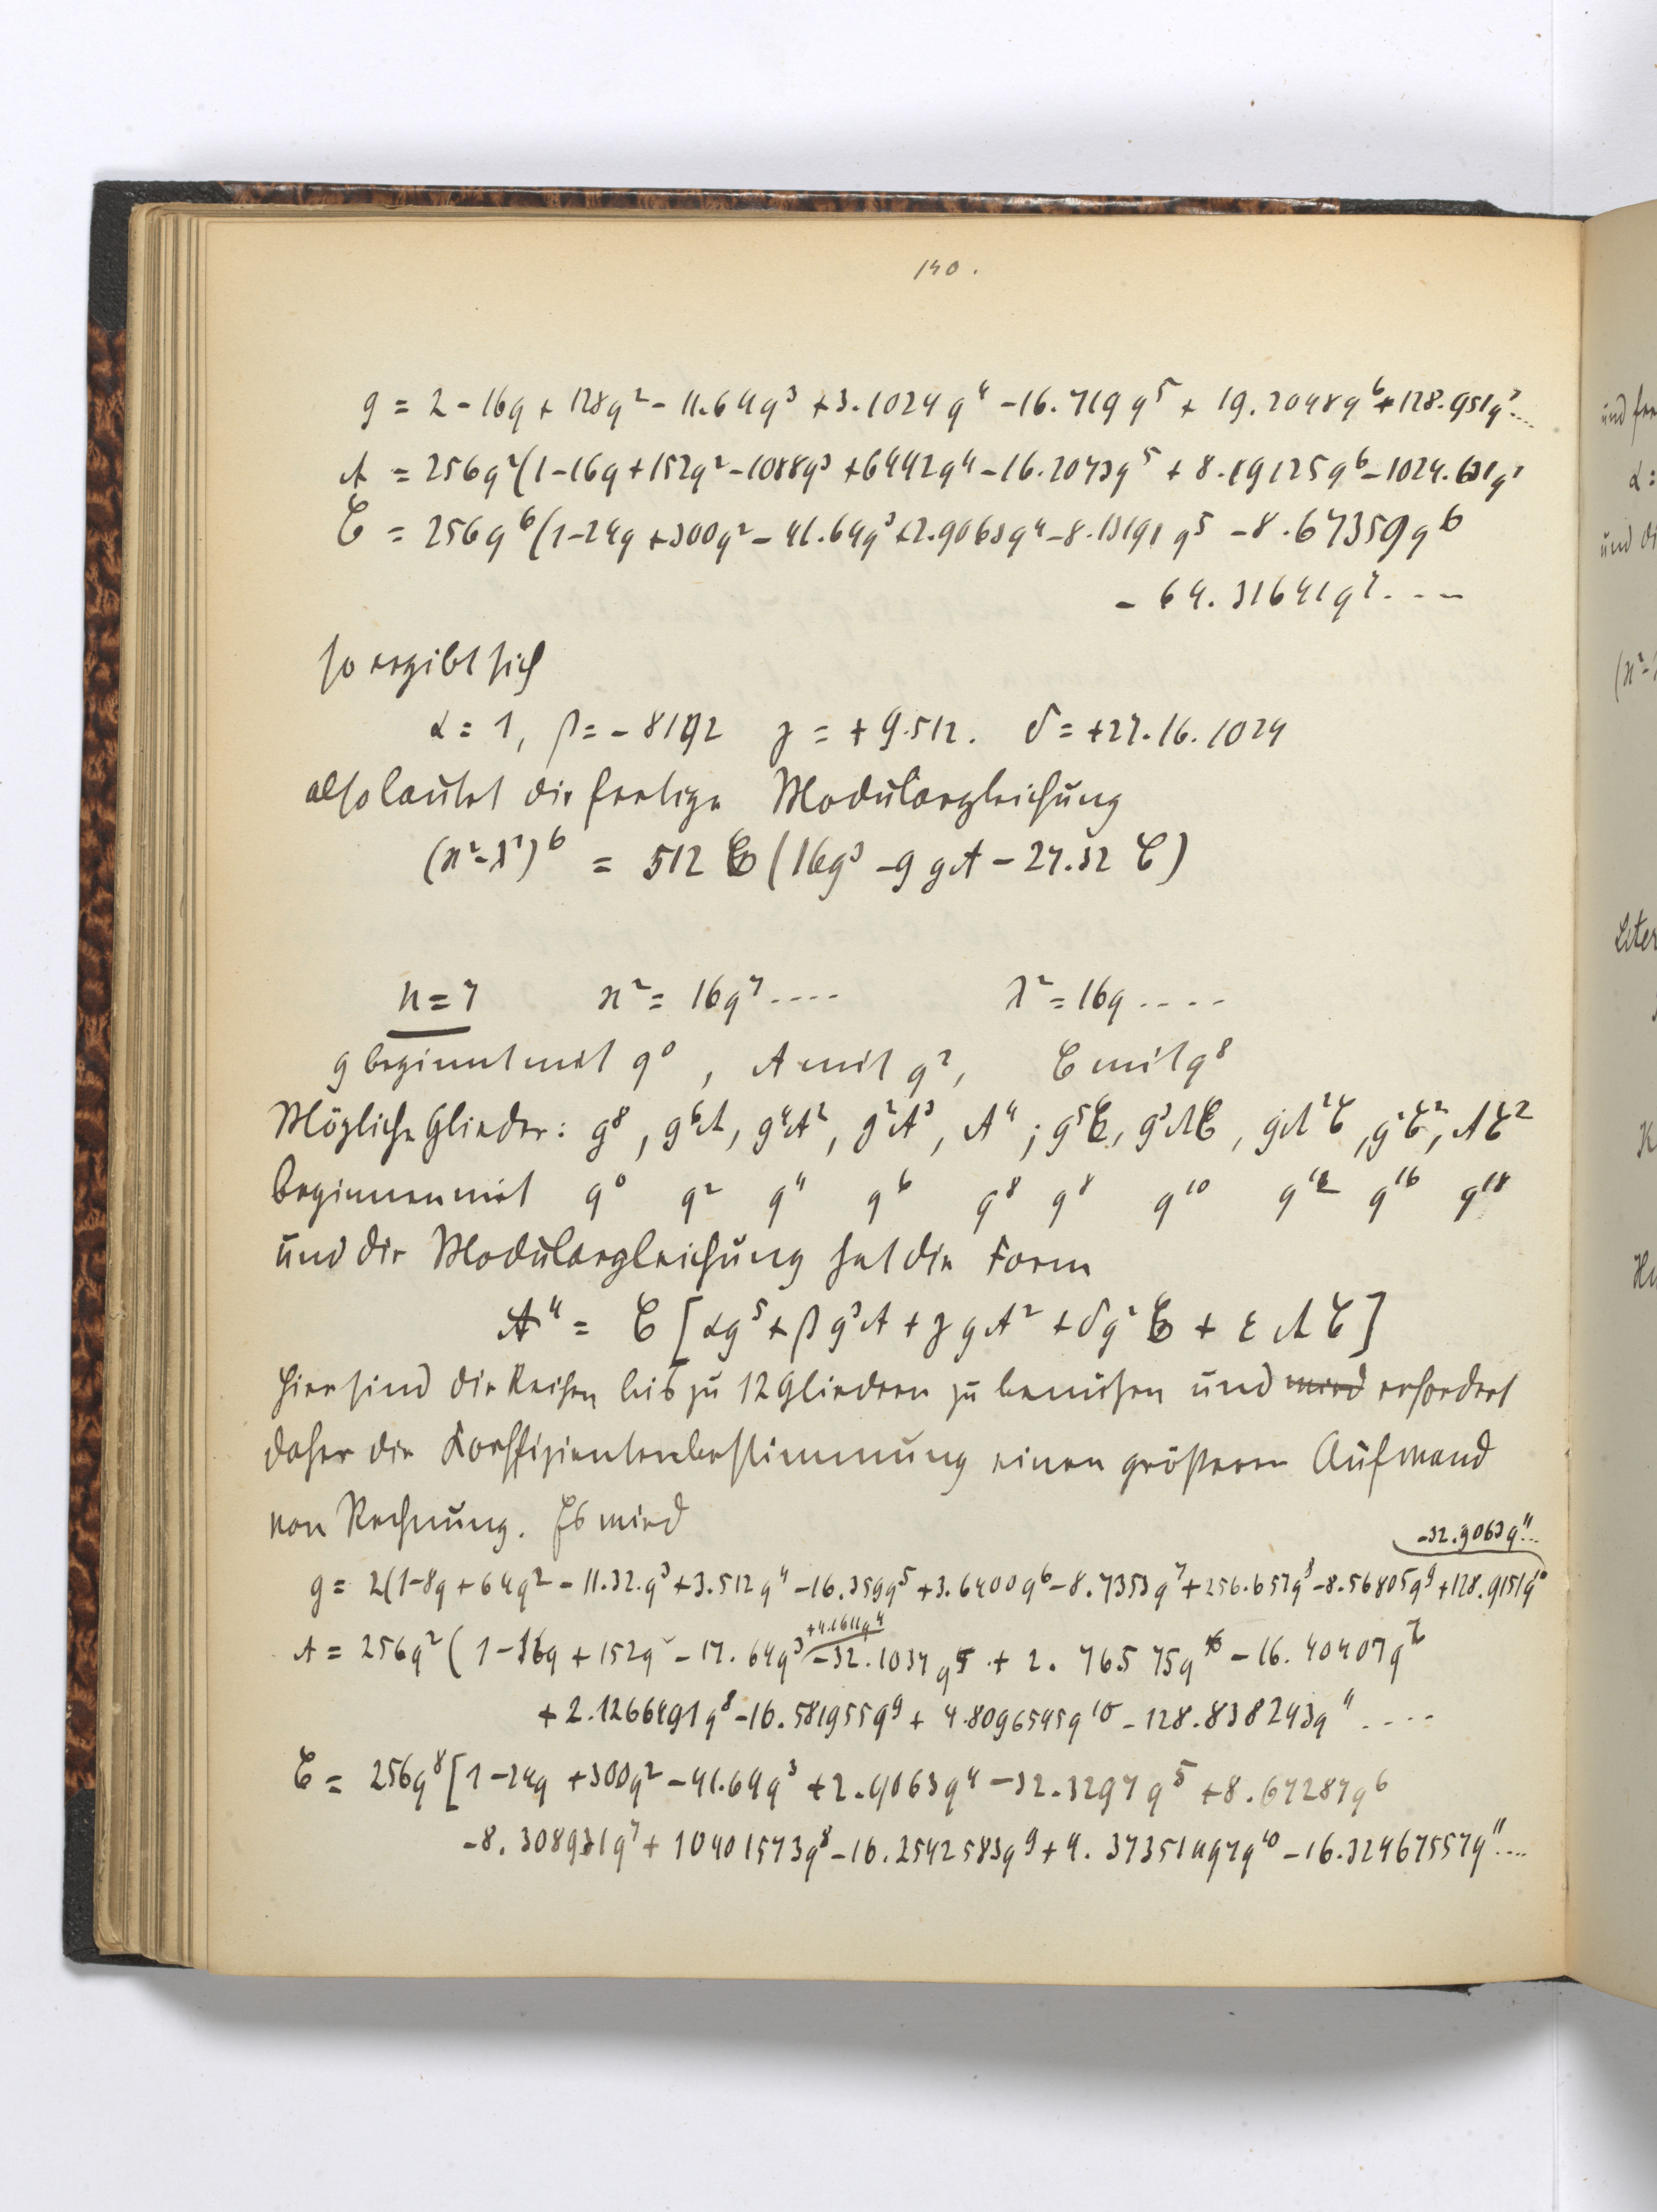 130.
g = 2 - 16q + 128q² - 11.64q³ + 3.1024q⁴ - 16.719q⁵ + 19.2048q⁶ + 128.951q⁷....
A = 256q²(1-16q+152q²-1088q³+6442q⁴-16.2073q⁵ + 8.19125q⁶-1024.631q⁷
C = 256q⁶(1-24q+300q²-41.64q³+2.9063q⁴-8.13191q⁵ -8.67359q⁶
- 64.31641q⁷....
so ergibt sich
α = 1, β = -8192 γ = +9.512. δ = +27.16.1024
also lautet die fertige Modulargleichung
(κ²-λ²)⁶ = 512 C (16g³ - 9 g A - 27.32 C)
n = 7 κ² = 16q⁷.... λ² = 16q....
g beginnt mit q⁰, A mit q², C mit q⁸
Mögliche Glieder: g⁸, g⁶A, g⁴A², g²A³, A⁴; g⁵C, g³AC, gA²C, g²C², AC²
beginnen mit q⁰ q² q⁴ q⁶ q⁸ q⁸ q¹⁰ q¹² q¹⁶ q¹⁸
und die Modulargleichung hat die Form
A⁴ = C [αg⁵ + βg³A + γgA² + δg²C + εAC]
Hier sind die Reihen bis zu 12 Gliedern zu benützen und wird erfordert
daher die Koeffizientenbestimmung einen größeren Aufwand
von Rechnung. Es wird
-32.9063q¹¹...
g = 2(1-8q+64q²-11.32.q³+3.512q⁴-16.359q⁵+3.6400q⁶-8.7353q⁷+256.657q⁸-8.56805q⁹+128.9151q¹⁰
+4.1611q⁴
A = 256q²(1-16q+152q²-17.64q³-32.1037q⁵+2.76575q⁶-16.40407q⁷
+2.1266491q⁸-16.581955q⁹+4.8096545q¹⁰-128.838243q¹¹....
C = 256q⁸[1-24q+300q²-41.64q³+2.9063q⁴-32.3297q⁵+8.67287q⁶
-8.308931q⁷+10401573q⁸-16.2542583q⁹+4.373511497q¹⁰-16.324675557q¹¹....